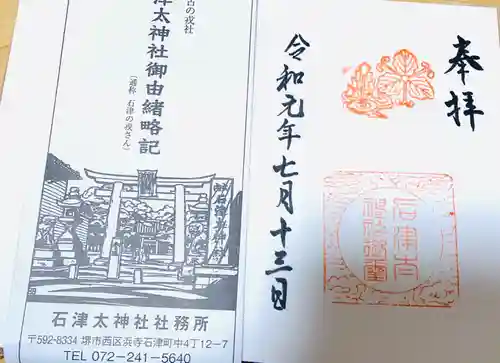 奉拝
石津太
神社御璽
令和元年七月十三日
古の戎社
津太神社御由緒略記
(通称 石津の戎さん)
石津太神社社務所
〒592-8334 堺市西区浜寺石津町中4丁12-7
TEL 072-241-5640